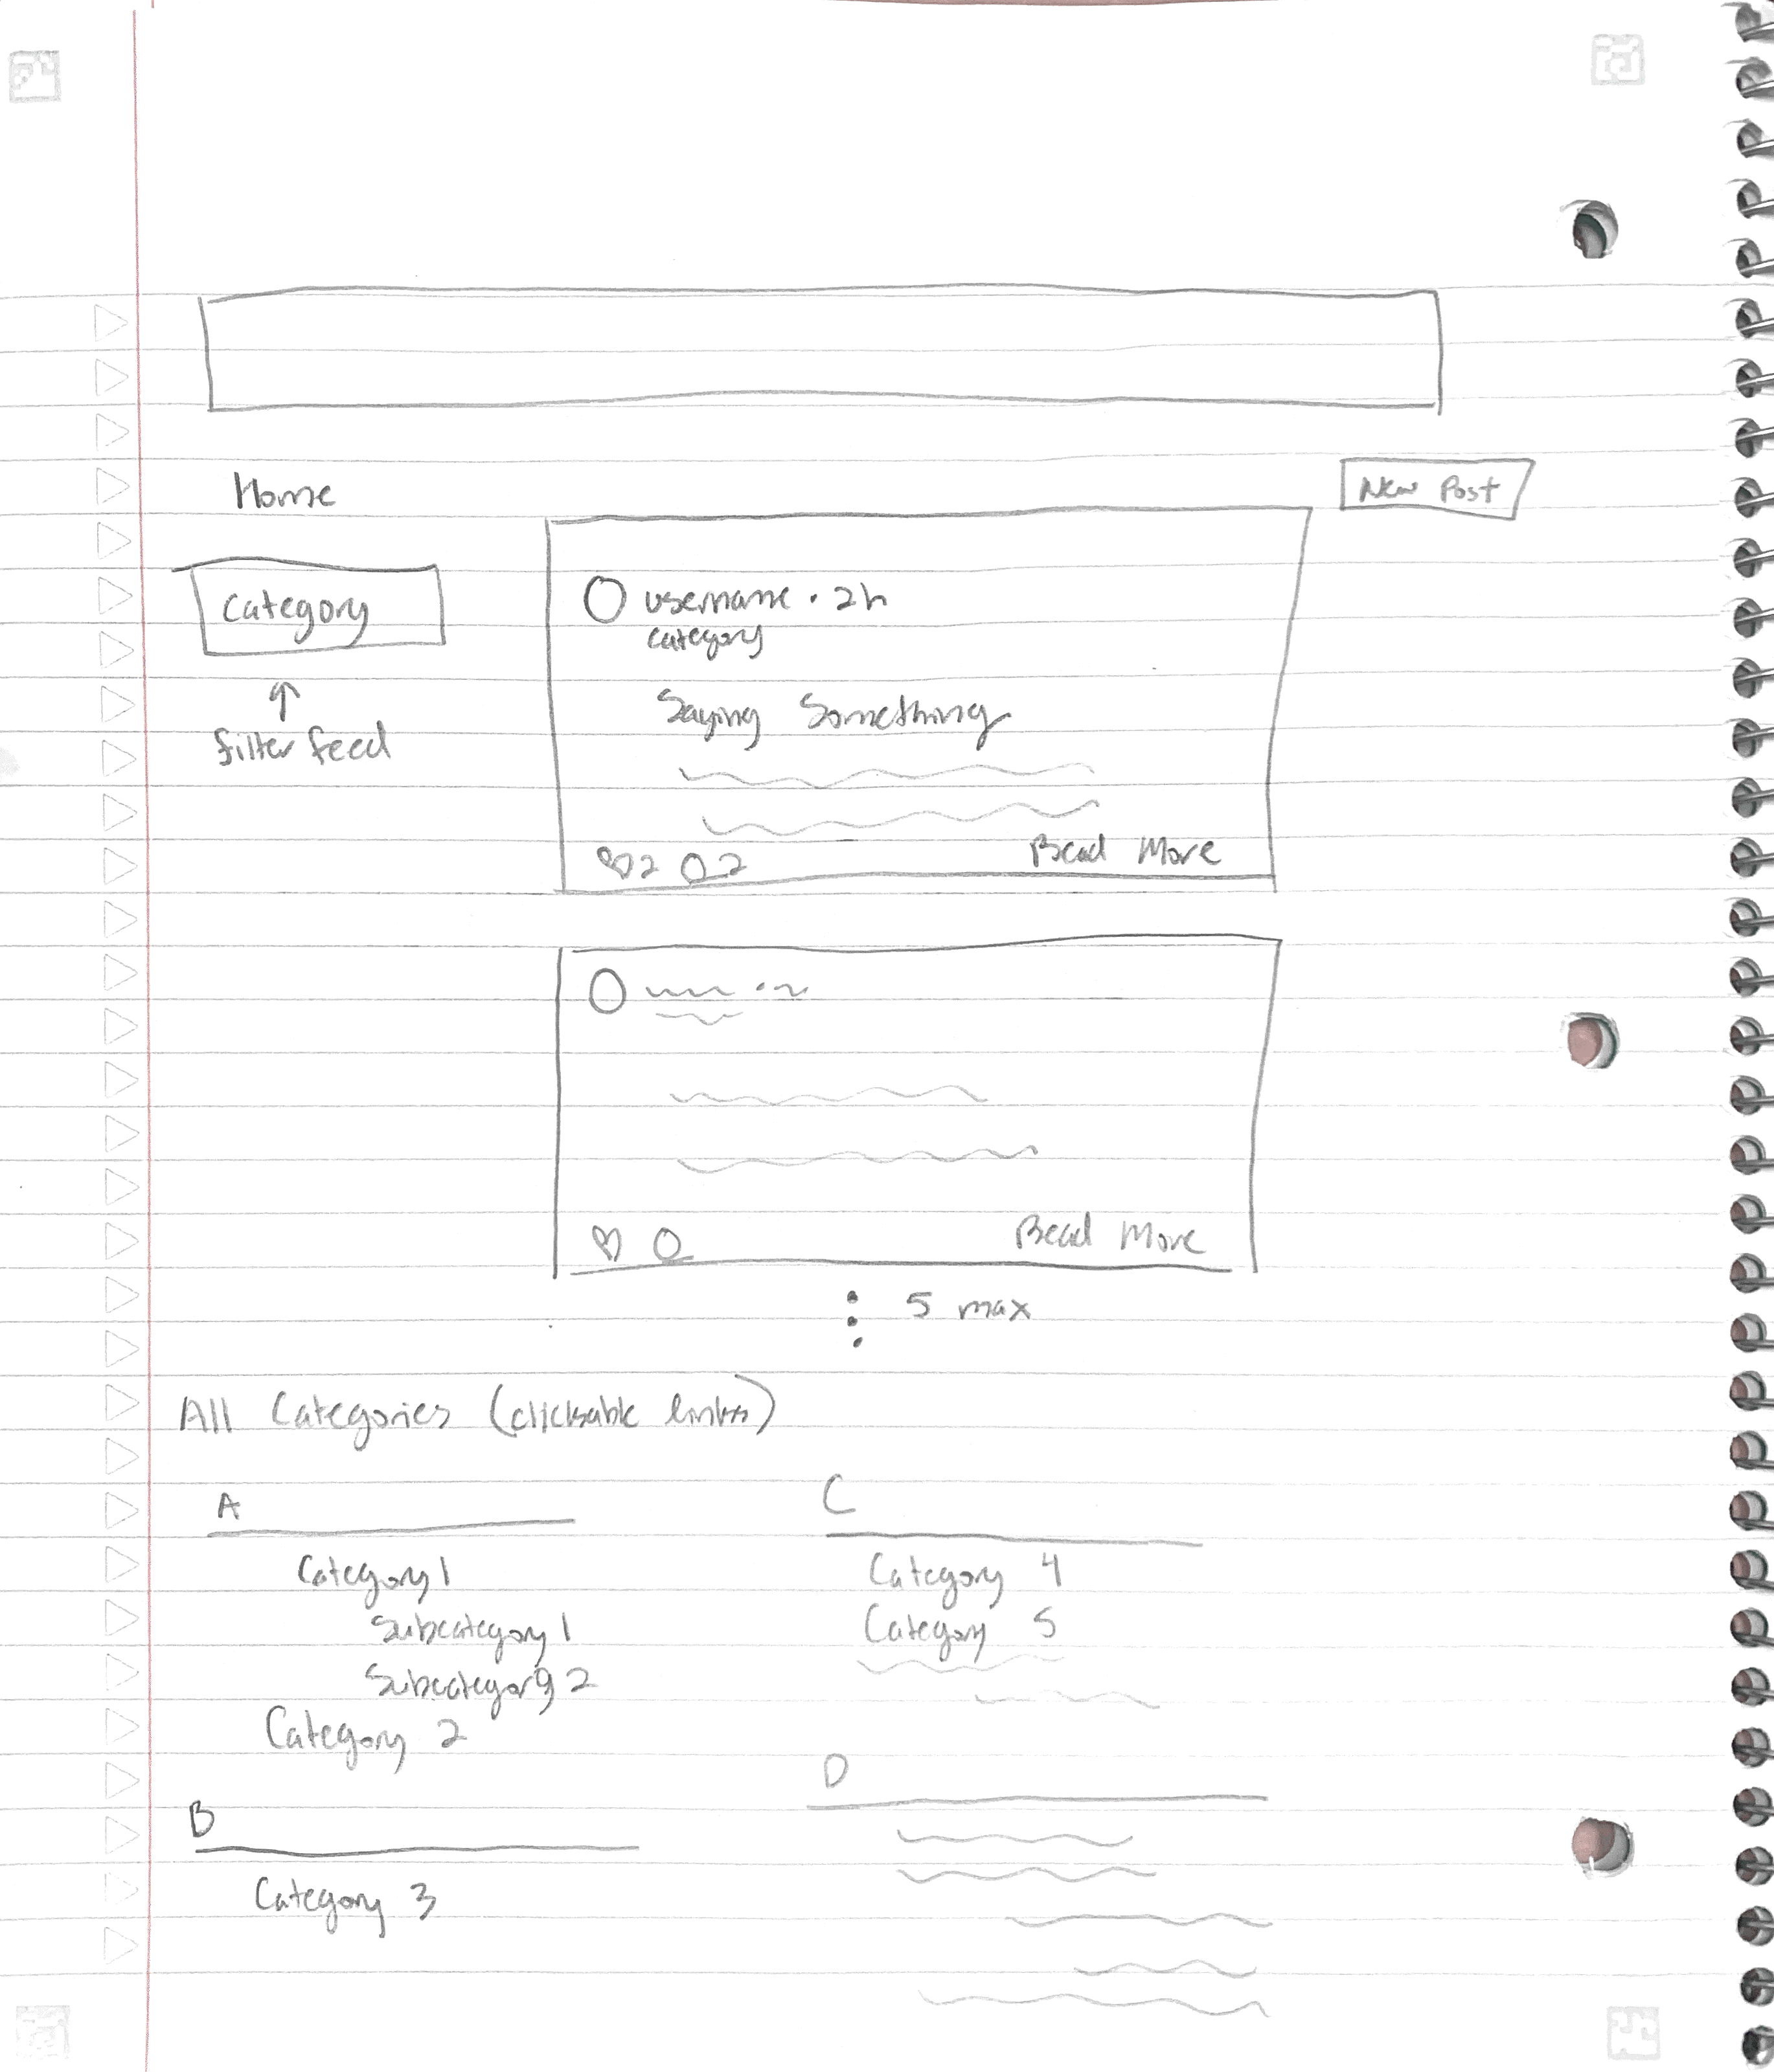 Home
New Post
Category
↑
filter feed
username · 2h
category
Saying Something
♡2 2
Read More
Read More
5 max
All Categories (clickable links)
A
Category 1
Subcategory 1
Subcategory 2
Category 2
B
Category 3
C
Category 4
Category 5
D